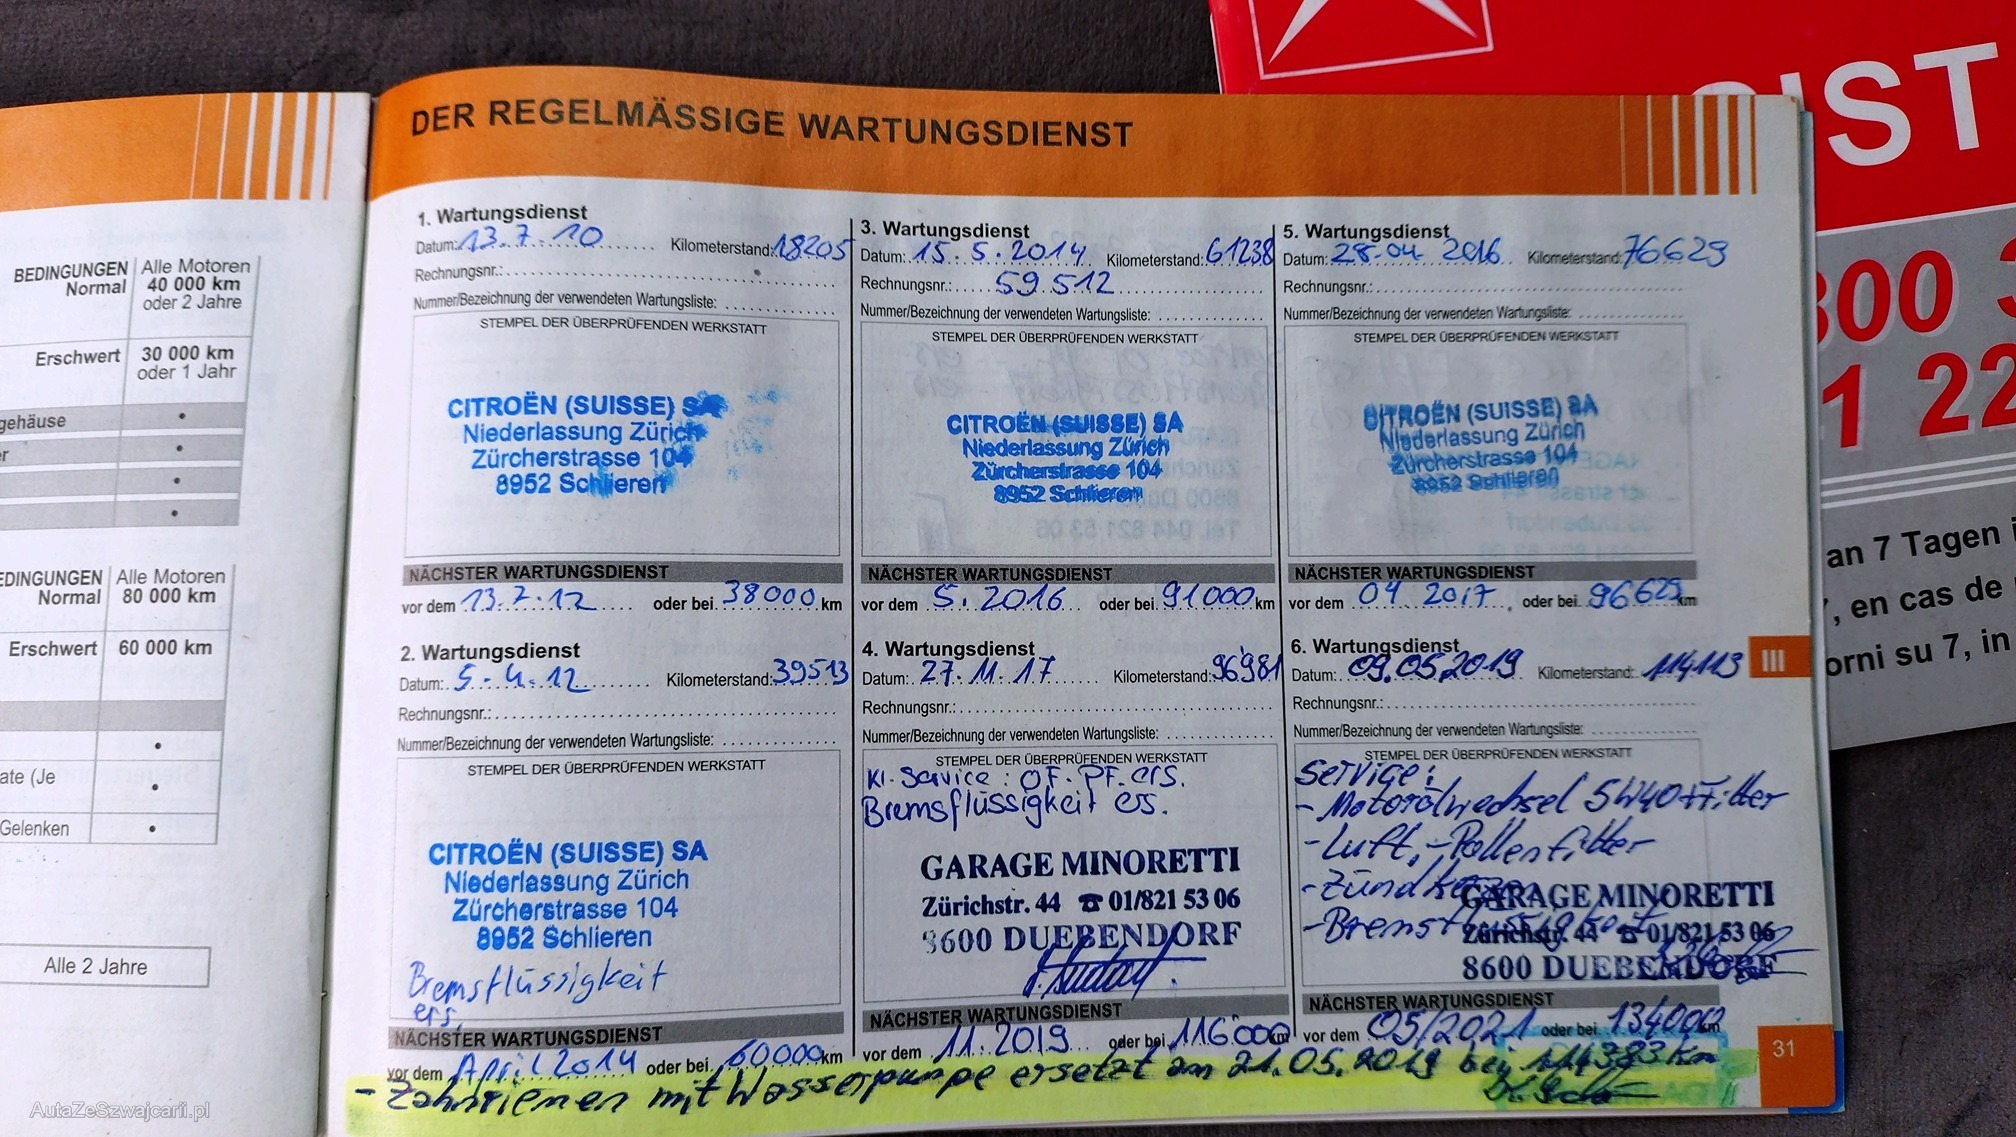 BEDINGUNGEN
Normal
Alle Motoren
40 000 km
oder 2 Jahre
Erschwert
30 000 km
oder 1 Jahr
gehäuse
EDINGUNGEN
Normal
Alle Motoren
80 000 km
Erschwert
60 000 km
ate (Je
Gelenken
Alle 2 Jahre
DER REGELMÄSSIGE WARTUNGSDIENST
1. Wartungsdienst
Datum: 13.7.10 Kilometerstand: 18205
Rechnungsnr.:
Nummer/Bezeichnung der verwendeten Wartungsliste:
STEMPEL DER ÜBERPRÜFENDEN WERKSTATT
CITROËN (SUISSE) SA
Niederlassung Zürich
Zürcherstrasse 104
8952 Schlieren
NÄCHSTER WARTUNGSDIENST
vor dem 13.7.12 oder bei 38000 km
2. Wartungsdienst
Datum: 5.4.12 Kilometerstand: 39513
Rechnungsnr.:
Nummer/Bezeichnung der verwendeten Wartungsliste:
STEMPEL DER ÜBERPRÜFENDEN WERKSTATT
CITROËN (SUISSE) SA
Niederlassung Zürich
Zürcherstrasse 104
8952 Schlieren
Bremsflüssigkeit
ers.
NÄCHSTER WARTUNGSDIENST
vor dem April 2014 oder bei 60000 km
3. Wartungsdienst
Datum: 15.5.2014 Kilometerstand: 61238
Rechnungsnr.: 59512
Nummer/Bezeichnung der verwendeten Wartungsliste:
STEMPEL DER ÜBERPRÜFENDEN WERKSTATT
CITROËN (SUISSE) SA
Niederlassung Zürich
Zürcherstrasse 104
8952 Schlieren
NÄCHSTER WARTUNGSDIENST
vor dem 5.2016 oder bei 91000 km
4. Wartungsdienst
Datum: 27.11.17 Kilometerstand: 96981
Rechnungsnr.:
Nummer/Bezeichnung der verwendeten Wartungsliste:
STEMPEL DER ÜBERPRÜFENDEN WERKSTATT
Kl. Service: OF. PF. ers.
Bremsflüssigkeit ers.
GARAGE MINORETTI
Zürichstr. 44 ☎ 01/821 53 06
8600 DUEBENDORF
NÄCHSTER WARTUNGSDIENST
vor dem 11.2019 oder bei 116'000 km
5. Wartungsdienst
Datum: 28.04 2016 Kilometerstand: 76629
Rechnungsnr.:
Nummer/Bezeichnung der verwendeten Wartungsliste:
STEMPEL DER ÜBERPRÜFENDEN WERKSTATT
CITROËN (SUISSE) SA
Niederlassung Zürich
Zürcherstrasse 104
8952 Schlieren
NÄCHSTER WARTUNGSDIENST
vor dem 04 2017 oder bei 96629 km
6. Wartungsdienst
Datum: 09.05.2019 Kilometerstand: 114113
Rechnungsnr.:
Nummer/Bezeichnung der verwendeten Wartungsliste:
STEMPEL DER ÜBERPRÜFENDEN WERKSTATT
Service:
- Motorölwechsel 5W40+Filter
- Luft, -Pollenfilter
- Zündkerzen
- Bremsflüssigkeit
GARAGE MINORETTI
Zürichstr. 44 ☎ 01/821 53 06
8600 DUEBENDORF
NÄCHSTER WARTUNGSDIENST
vor dem 05/2021 oder bei 134000 km
- Zahnriemen mit Wasserpumpe ersetzt am 21.05.2019 bei 114383 km
III
31
IST
800 3
1 22
an 7 Tagen i
, en cas de
orni su 7, in
AutaZeSzwajcarii.pl